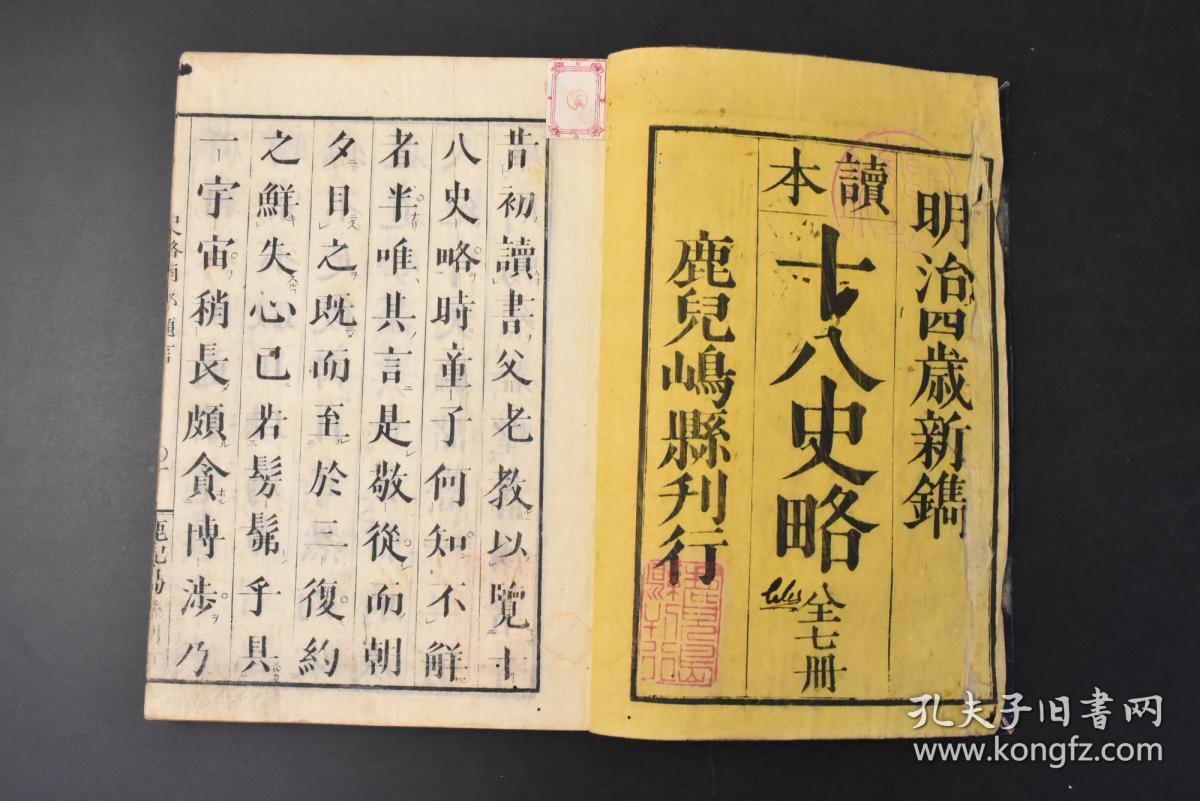 明治四歳新鐫
讀本
十八史略
全七冊
鹿兒嶋縣刋行
昔初讀書父老教以覽十
八史略時童子何知不解
者半唯其言是敬從而朝
夕目之既而至於三復約
之鮮失心已若髣髴乎具
一宇宙稍長頗貪博渉乃
孔夫子旧书网
www.kongfz.com